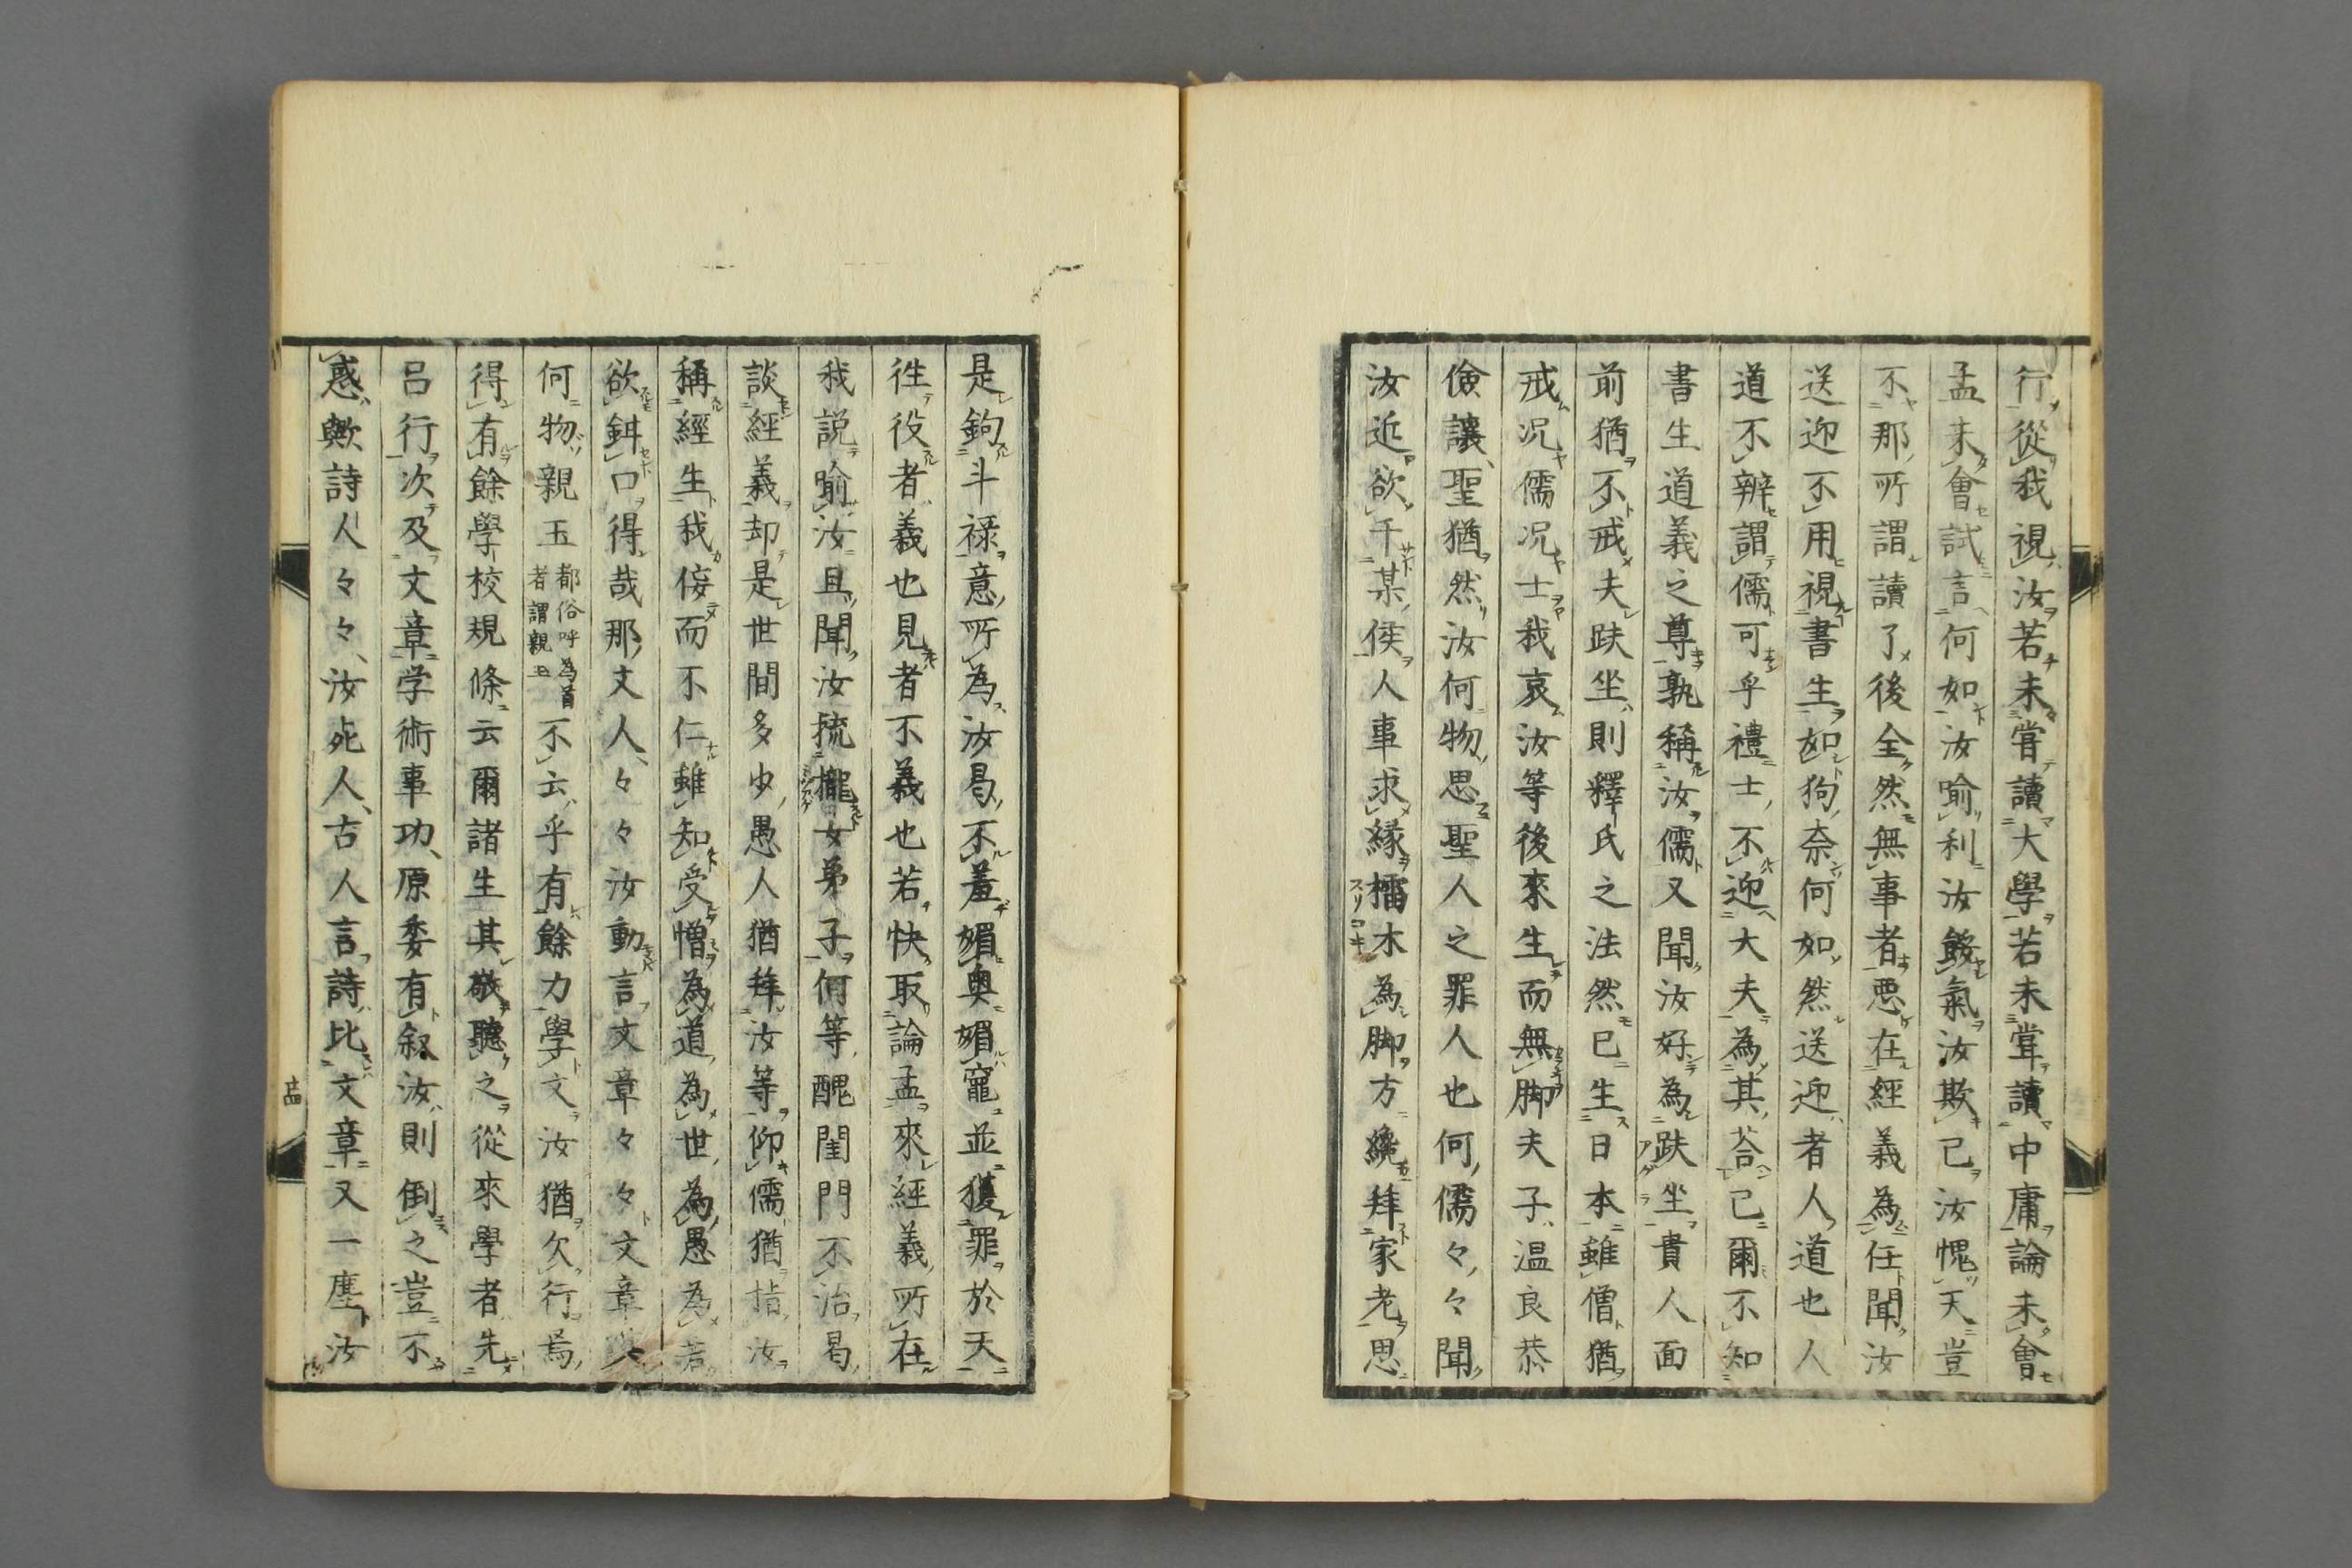 行從我視汝若未嘗讀大學若未嘗讀中庸論未會
孟未會試言何如汝喻利汝餒氣汝欺己汝愧天豈
不那所謂讀了後全然無事者悪在經義為任聞汝
送迎不用視書生如狗奈何如然送迎者人道也人
道不辨謂儒可乎禮士不迎大夫為其荅己爾不知
書生道義之尊孰稱汝儒又聞汝好為趺坐貴人面
前猶不戒夫趺坐則釋氏之法然已生日本雖僧猶
戒况儒况士我哀汝等後來生而無脚夫子温良恭
儉讓聖猶然汝何物思聖人之罪人也何儒々々聞
汝近欲干某侯人事求縁櫑木為脚方纔拜家老思
是鉤斗禄意所為汝曷不羞媚奥媚竈並獲罪於天
徃役者義也見者不義也若快取論孟來經義所在
我説喻汝且聞汝梳櫳女弟子何等醜閨門不治曷
談經義却是世間多少愚人猶拜汝等仰儒猶指汝
稱經生我侫而不仁雖知受憎為道為世為愚為若
欲鉗口得哉那丈人々々汝動言文章々々文章
何物親玉都俗呼為首者謂親玉不云乎有餘力學文汝猶欠行焉
得有餘學校規條云爾諸生其敬聽之從來學者先
呂行次及文章学術事功原委有叙汝則倒之豈不
惑歟詩人々々汝死人古人言詩比文章又一塵汝